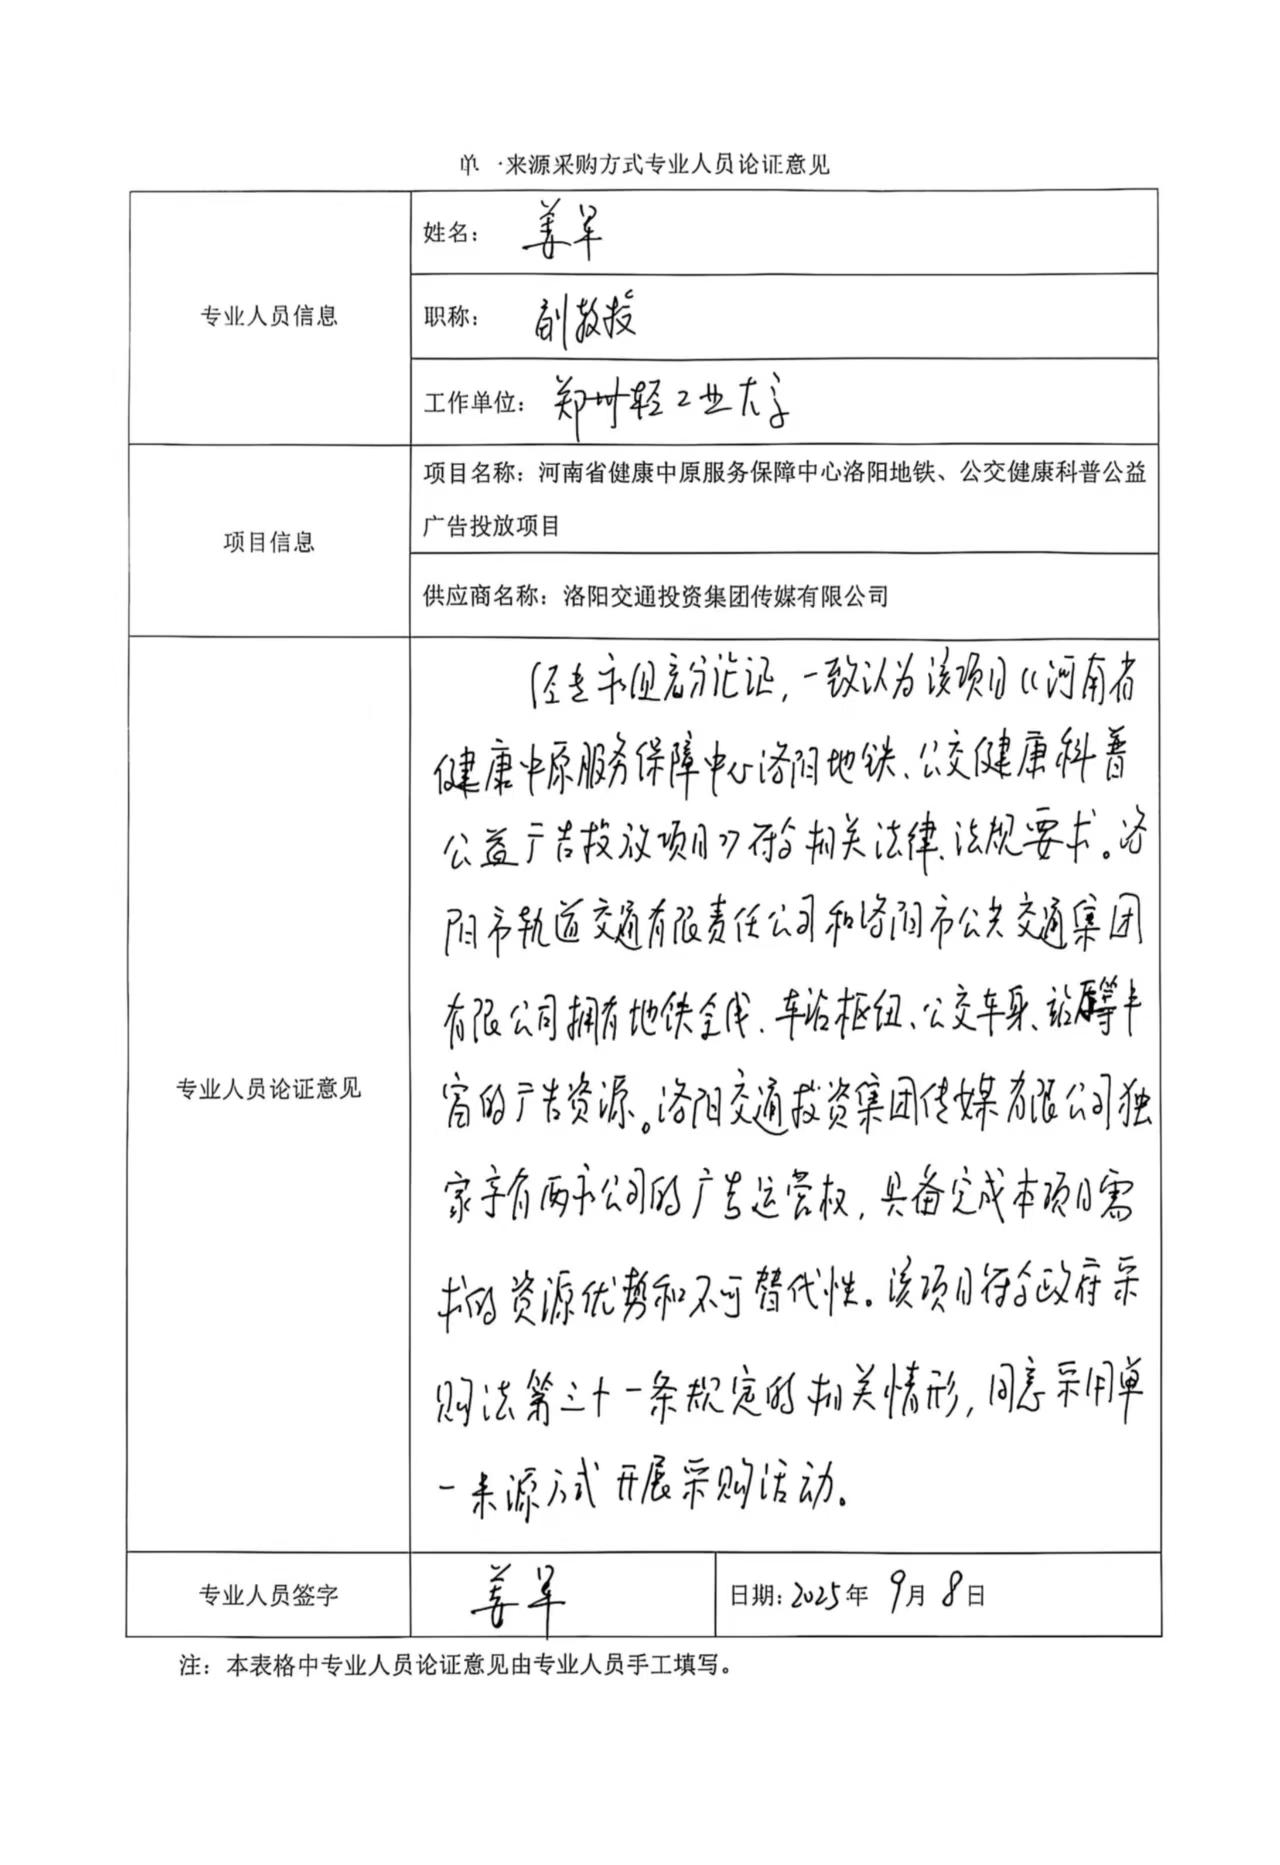 单一来源采购方式专业人员论证意见
专业人员信息
姓名： 姜军
职称： 副教授
工作单位： 郑州轻工业大学
项目信息
项目名称：河南省健康中原服务保障中心洛阳地铁、公交健康科普公益
广告投放项目
供应商名称：洛阳交通投资集团传媒有限公司
专业人员论证意见
经专家组充分论证，一致认为该项目《河南省
健康中原服务保障中心洛阳地铁、公交健康科普
公益广告投放项目》符合相关法律、法规要求。洛
阳市轨道交通有限责任公司和洛阳市公共交通集团
有限公司拥有地铁全线、车站枢纽、公交车身、站等丰
富的广告资源。洛阳交通投资集团传媒有限公司独
家享有两家公司的广告运营权，具备完成本项目需
求的资源优势和不可替代性。该项目符合政府采
购法第三十一条规定的相关情形，同意采用单
一来源方式开展采购活动。
专业人员签字
姜军
日期：2025年 9月 8日
注：本表格中专业人员论证意见由专业人员手工填写。